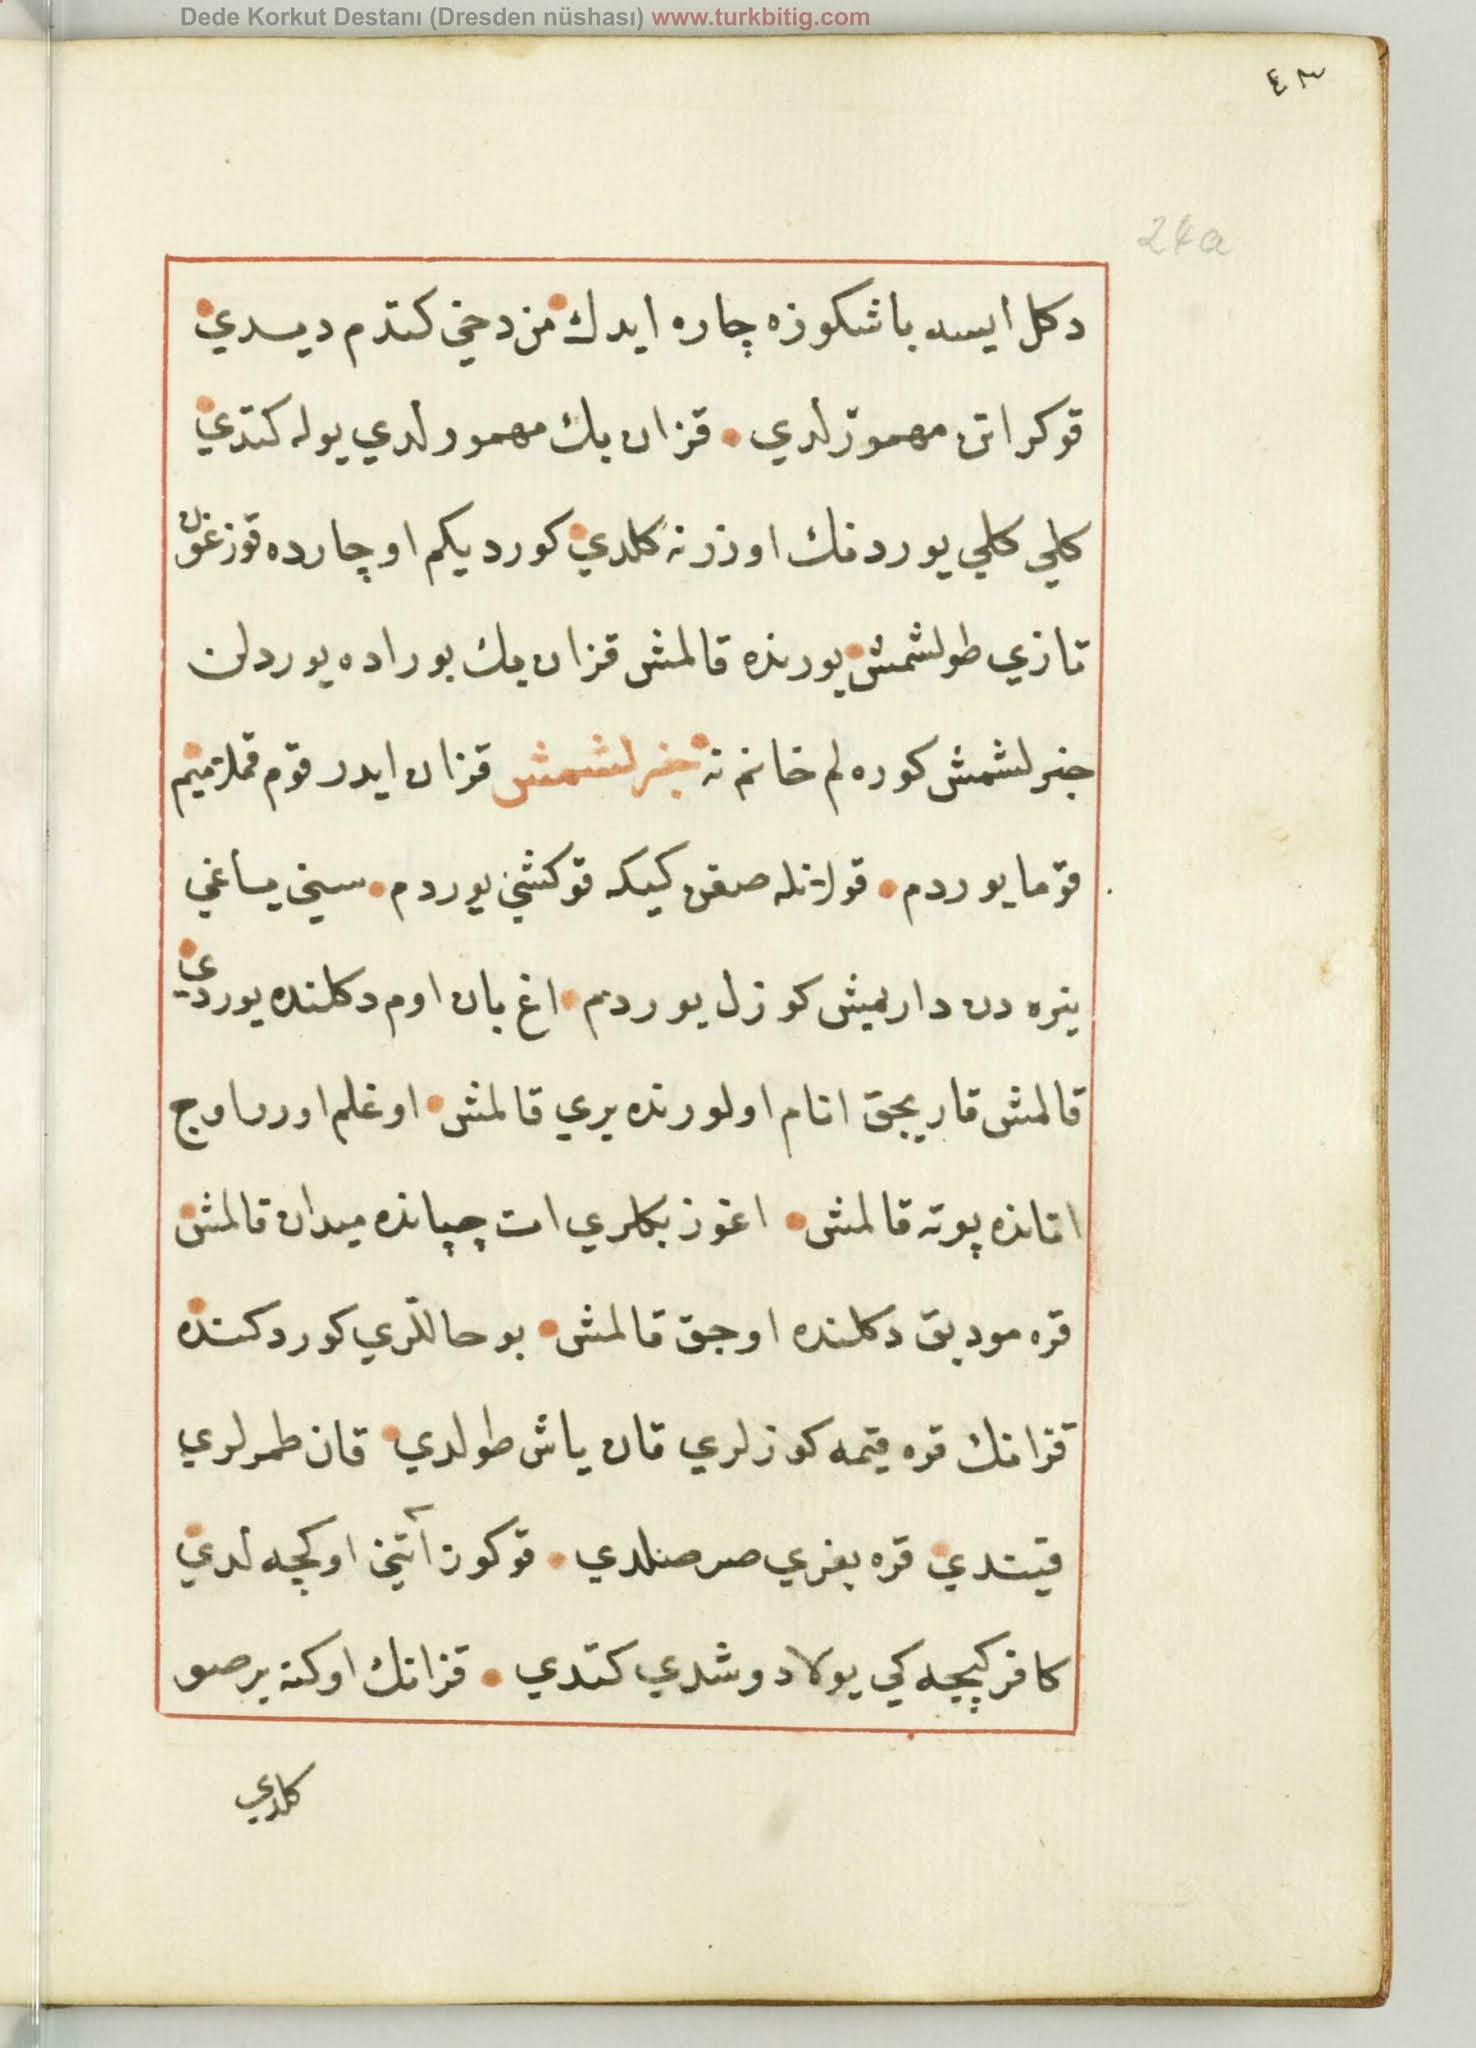 Dede Korkut Destanı (Dresden nüshası) www.turkbitig.com
٤٣
24a
دكل ايسه باشكوزه چاره ايدك من دخي كتدم ديدي
قوكر اتن مهموزلدي قزان بك مهمورلدي يوله كتدي
كلي كلي يوردنك اوزرنه كلدي كورديكم اوچارده قوزغون
تازي طولشمش يورنده قالمش قزان بك بوراده يوردلن
خبرلشمش كوره لم خانم نه خبرلشمش قزان ايدر قوم قملاميم
قوما يوردم قولانله صغن كيكه قوكشي يوردم سيني يساغي
ينره دن داريمش كوزل يوردم اغ بان اوم دكلنده يوردي
قالمش قاريجق انام اولورنده يري قالمش اوغلم اورساوج
اتانده پوته قالمش اغوز بكلري ات چپانده ميدان قالمش
قره مودبق دكلنده اوجق قالمش بو حاللري كوردكنده
قزانك قره قيمه كوزلري قان ياش طولدي قان طمرلري
قيندي قره بغري صرصلدي قوكور آتين اوكچه لدي
كافر كيچه كي يولا دوشدي كتدي قزانك اوكنه بر صو
كلدي